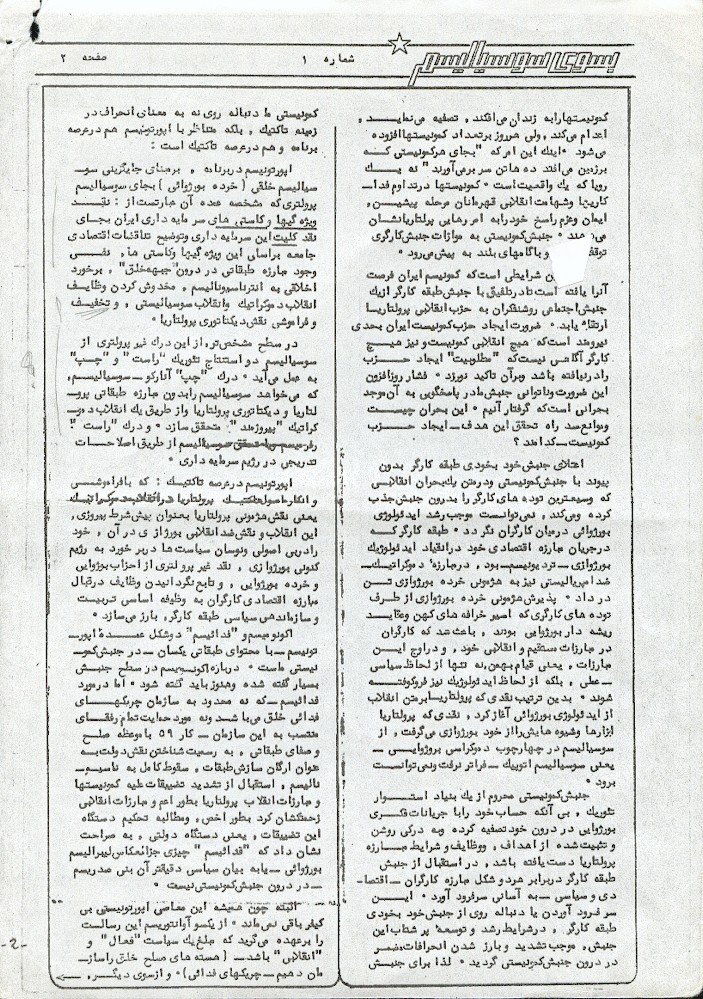 بسوی سوسیالیسم
شماره ۱
صفحه ۲
کمونیستها را به زندان می‌افکند, تصفیه می‌نماید,
اعدام می‌کند, ولی هر روز بر تعداد کمونیستها افزوده
می‌شود. اینک این امر که "بجای هر کمونیستی که
بر زمین می‌افتد ده ها تن سر بر می‌آورند" نه یک
رویا که یک واقعیت است. کمونیستها در تداوم فدا‌ـ
کاریها و شهامت انقلابی قهرمانان مرحله پیشین,
ایمان و عزم راسخ خود را به امر رهایی پرولتاریا نشان
می‌دهند. جنبش کمونیستی به موازات جنبش کارگری
و با گامهای بلند به پیش می‌رود.
شرایطی است که کمونیسم ایران فرصت
آنرا یافته است تا در تلفیق با جنبش طبقه کارگر از یک
جنبش اجتماعی روشنفکران به حزب انقلابی پرولتاریا
ارتقاء یابد. ضرورت ایجاد حزب کمونیست ایران بحدی
نیرومند است که هیچ انقلابی کمونیست و نیز هیچ
کارگر آگاهی نیست که "مطلوبیت" ایجاد حزب
را در نیافته باشد و بر آن تاکید نورزد. فشار روز افزون
این ضرورت و ناتوانی جنبش ما در پاسخگویی به آن موجد
بحرانی است که گرفتار آنیم. این بحران چیست
و موانع سد راه تحقق این هدف ـ ایجاد حزب
کمونیست ـ کدامند ؟
اعتلای جنبش خود بخودی طبقه کارگر بدون
پیوند با جنبش کمونیستی و در متن یک بحران انقلابی
که وسیعترین توده های کارگر را بدرون جنبش جذب
کرده و می‌کند, نمی‌توانست موجب رشد ایدئولوژی
بورژوائی در میان کارگران نگردد. طبقه کارگر که
در جریان مبارزه اقتصادی خود در انقیاد ایدئولوژیک
بورژوازی ـ تردیونیسم ـ بود, در مبارزه دموکراتیک ـ
ضد امپریالیستی نیز به هژمونی خرده بورژوازی تن
در داد. پذیرش هژمونی خرده بورژوازی از طرف
توده های کارگری که اسیر خرافه های کهن و عقاید
ریشه دار بورژوایی بودند, باعث شد که کارگران
در مبارزات مستقیم و انقلابی خود, و در اوج این
مبارزات, یعنی قیام بهمن, نه تنها از لحاظ سیاسی
ـ عملی, بلکه از لحاظ ایدئولوژیک نیز فروکوفته
شوند. بدین ترتیب نقدی که پرولتاریا بر متن انقلاب
از ایدئولوژی بورژوائی آغاز کرد, نقدی که پرولتاریا
ابزارها و شیوه هایش را از خود بورژوازی می‌گرفت, از
سوسیالیسم در چهارچوب دموکراسی بورژوایی ـ
یعنی سوسیالیسم اتوپیک ـ فراتر نرفت و نمی‌توانست
برود.
جنبش کمونیستی محروم از یک بنیاد استوار
تئوریک, بی آنکه حساب خود را با جریانات فکری
بورژوایی در درون خود تصفیه کرده و به درکی روشن
و تثبیت شده از اهداف, و وظایف و شرایط مبارزه
پرولتاریا دست یافته باشد, در استقبال از جنبش
طبقه کارگر در برابر هر دو شکل مبارزه کارگران ـ اقتصا‌ـ
دی و سیاسی ـ به آسانی سر فرود آورد. این
سر فرود آوردن یا دنباله روی از جنبش خود بخودی
طبقه کارگر, در شرایط رشد و توسعهٔ پر شتاب این
جنبش, موجب تشدید و بارز شدن انحرافات مضمر
در درون جنبش کمونیستی گردید. لذا برای جنبش
کمونیستی ما دنباله روی نه به معنای انحراف در
زمینه تاکتیک, بلکه متناظر با اپورتونیسم هم در عرصه
برنامه و هم در عرصه تاکتیک است :
اپورتونیسم در برنامه, بر مبنای جایگزینی سو‌ـ
سیالیسم خلقی ( خرده بورژوائی ) بجای سوسیالیسم
پرولتری که مشخصه عمده آن عبارتست از : نقد
ویژه گیها و کاستی های سرمایه داری ایران بجای
نقد کلیت این سرمایه داری و توضیح تناقضات اقتصادی
جامعه بر اساس این ویژه گیها و کاستی ها, نفی
وجود مبارزه طبقاتی در درون "جبهه خلق", برخورد
اخلاقی به انترناسیونالیسم, مخدوش کردن وظایف
انقلاب دموکراتیک و انقلاب سوسیالیستی, و تخفیف
و فراموشی نقش دیکتاتوری پرولتاریا.
در سطح مشخص‌تر, از این درک غیر پرولتری از
سوسیالیسم دو استنتاج تئوریک "راست" و "چپ"
به عمل می‌آید. درک "چپ" آنارکو ـ سوسیالیسم,
که می‌خواهد سوسیالیسم را بدون مبارزه طبقاتی پرو‌ـ
لتاریا و دیکتاتوری پرولتاریا و از طریق یک انقلاب دمو‌ـ
کراتیک "پیروزمند" متحقق سازد. و درک "راست"
رفرمیسم و یا تحقق سوسیالیسم از طریق اصلاحات
تدریجی در رژیم سرمایه داری.
اپورتونیسم در عرصه تاکتیک : که با فراموشی
و انکار اصول تاکتیک پرولتاریا در انقلاب دموکراتیک
یعنی نقش هژمونی پرولتاریا بعنوان پیش شرط پیروزی,
این انقلاب و نقش ضد انقلابی بورژوازی در آن, خود
را در بی اصولی و نوسان سیاست ها در برخورد به رژیم
کنونی بورژوازی, نقد غیر پرولتری از احزاب بورژوایی
و خرده بورژوایی, و تابع نگردانیدن وظایف در قبال
مبارزه اقتصادی کارگران به وظیفه اساسی تربیت
و سازماندهی سیاسی طبقه کارگر, بارز می‌سازد.
اکونومیسم و "فدائیسم" دو شکل عمدهٔ اپور‌ـ
تونیسم ـ با محتوای طبقاتی یکسان ـ در جنبش کمو‌ـ
نیستی ماست. درباره اکونومیسم در سطح جنبش
بسیار گفته شده و هنوز باید گفته شود. اما در مورد
فدائیسم ـ که نه محدود به سازمان چریکهای
فدائی خلق می‌باشد و نه مورد حمایت تمام رفقای
منتسب به این سازمان ـ کار ۵۹ با موعظه صلح
و صفای طبقاتی, به رسمیت شناختن نقش دولت به
عنوان ارگان سازش طبقات, سقوط کامل به ناسیو‌ـ
نالیسم, استقبال از تشدید تضییقات علیه کمونیستها
و مبارزات انقلابی پرولتاریا بطور اعم و مبارزات انقلابی
زحمتکشان کرد بطور اخص, و مطالبه تحکیم دستگاه
این تضییقات, یعنی دستگاه دولتی, به صراحت
نشان داد که "فدائیسم" چیزی جز انعکاس لیبرالیسم
بورژوائی ـ یا به بیان سیاسی دقیقتر آن بنی صدریسم
ـ در درون جنبش کمونیستی نیست.
البته چون همیشه این معاصی اپورتونیستی بی
کیفر باقی نمی‌ماند. از یکسو آوانتوریسم این رسالت
را بر عهده می‌گیرد که مبلغ یک سیاست "فعال" و
"انقلابی" باشد ـ ( هسته های مسلح خلق را ساز‌ـ
مان دهیم ـ چریکهای فدائی ). و از سوی دیگر,
-2-